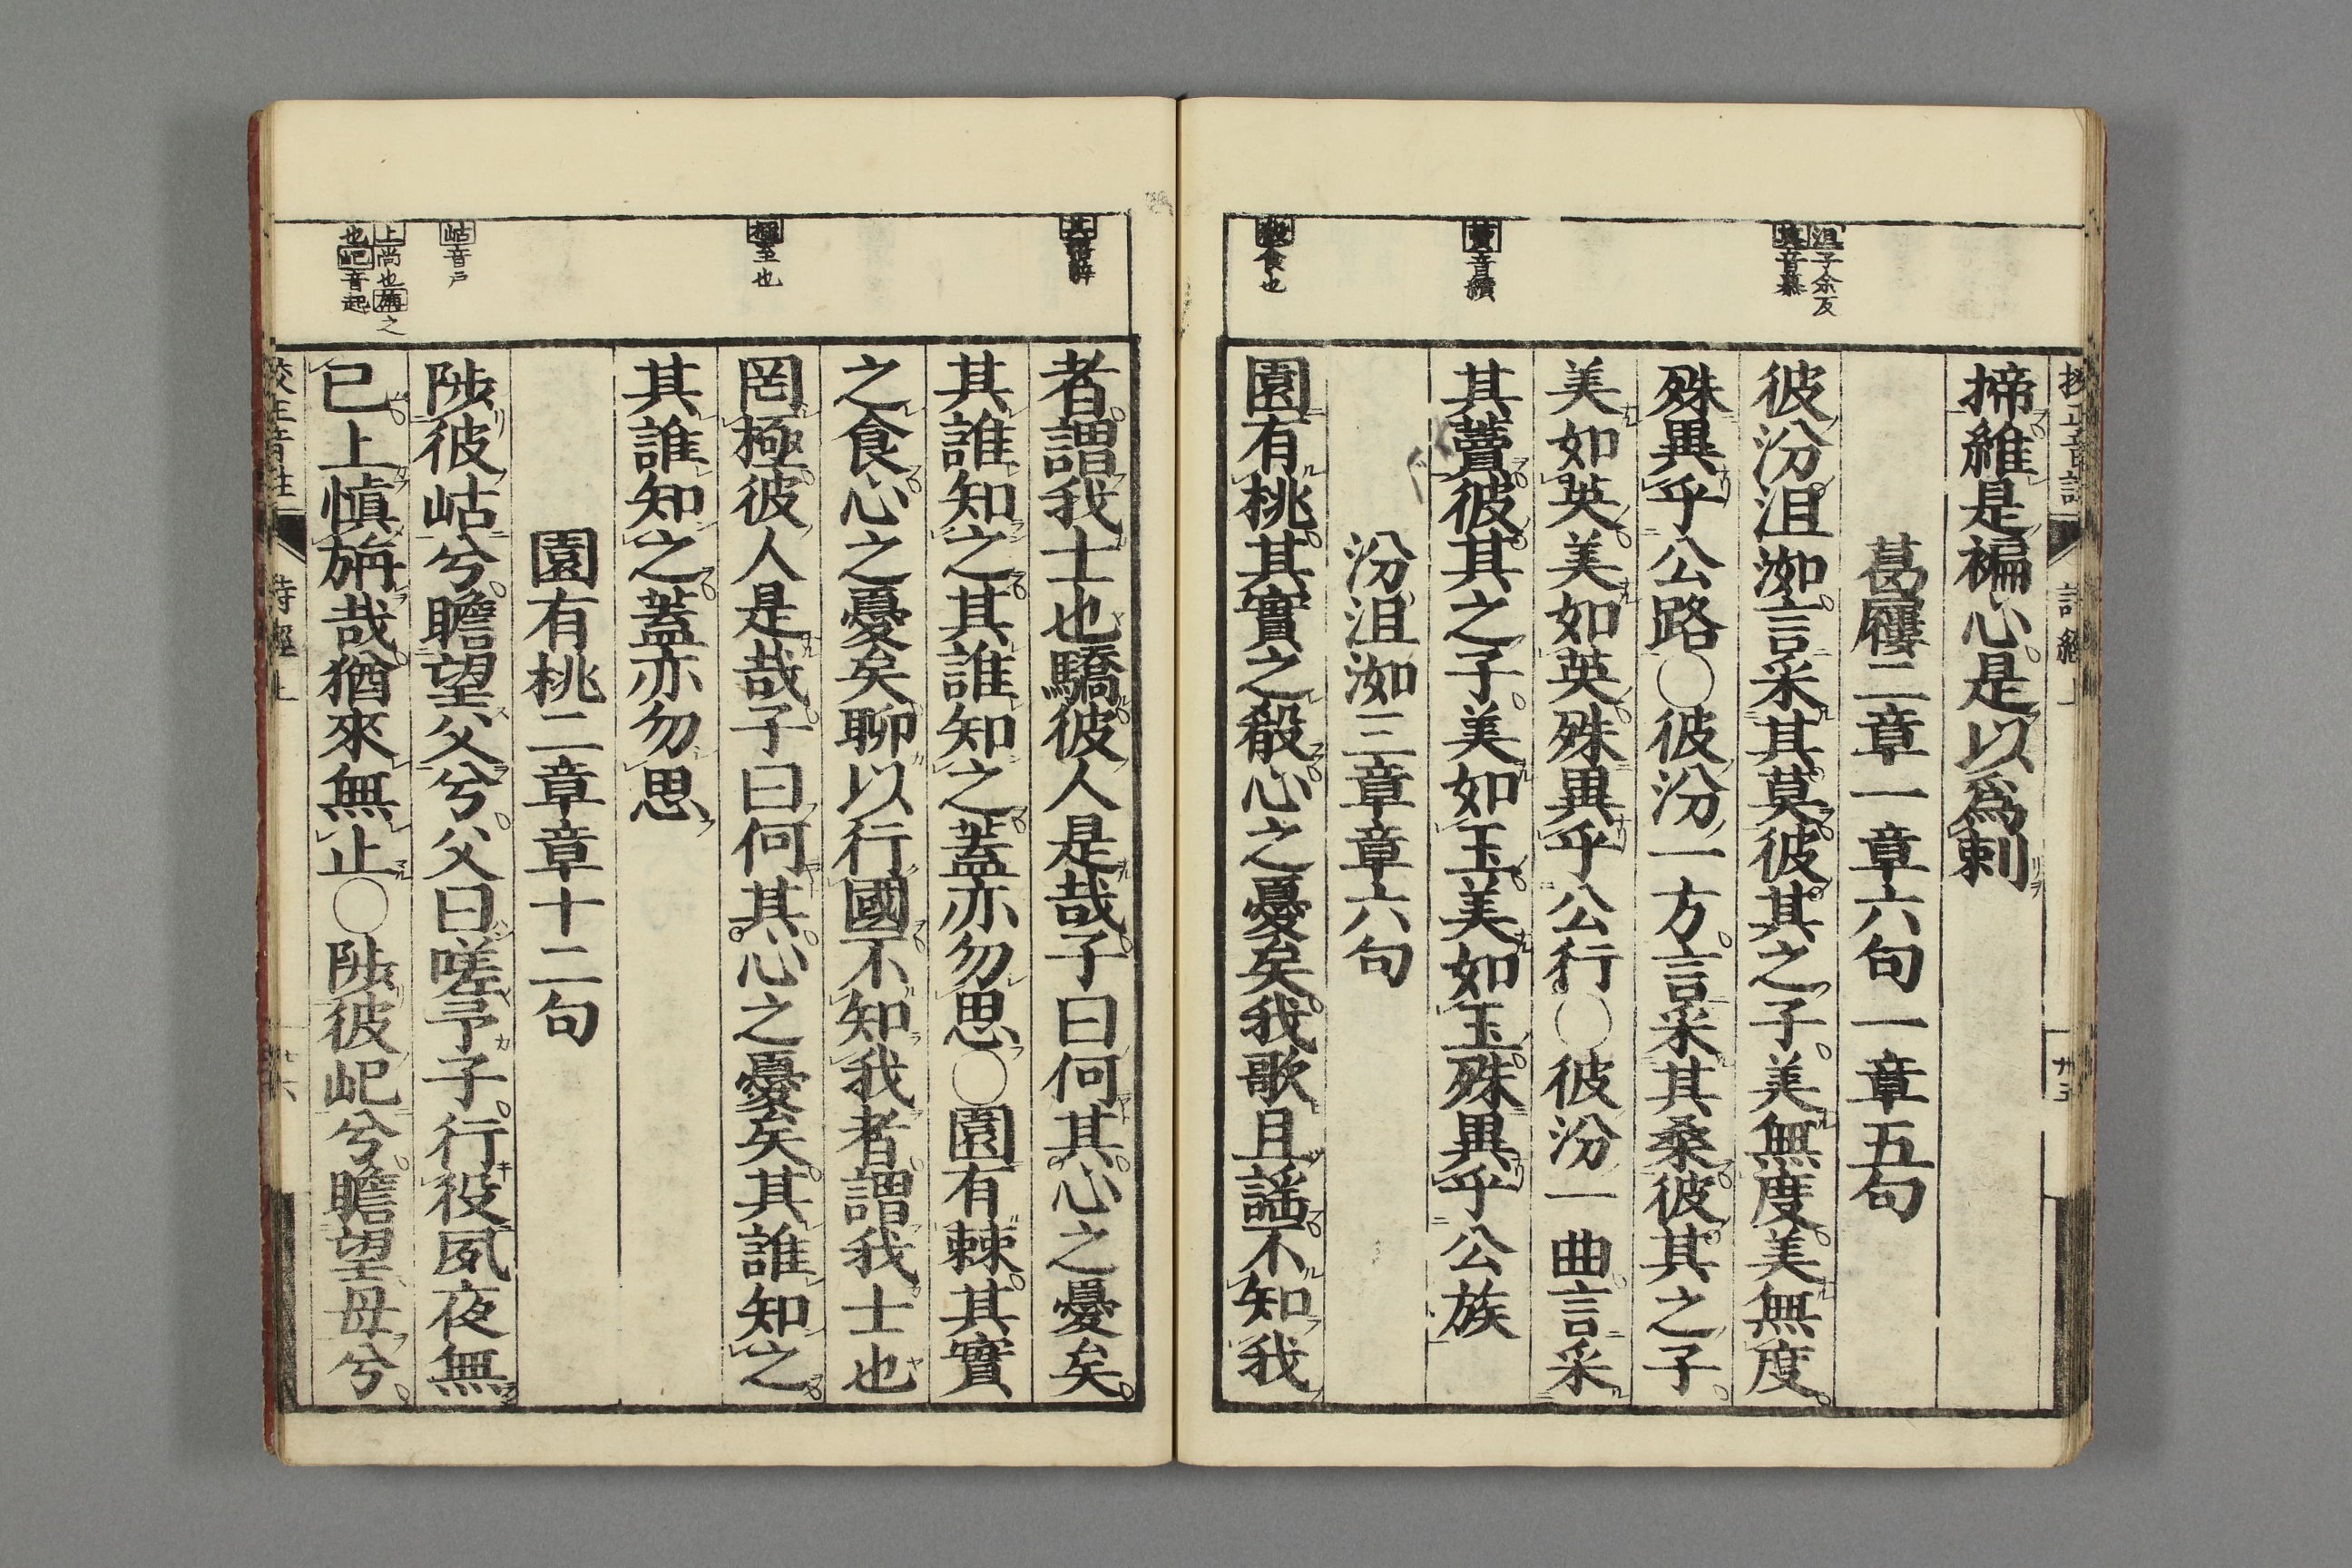 沮子余反
莫音慕
藚音續
殽食也
揥維是褊心是以爲刺
葛屨二章一章六句一章五句
彼汾沮洳言采其莫彼其之子美無度美無度
殊異乎公路〇彼汾一方言采其桑彼其之子
美如英美如英殊異乎公行〇彼汾一曲言采
其藚彼其之子美如玉美如玉殊異乎公族
汾沮洳三章章六句
園有桃其實之殽心之憂矣我歌且謠不知我
極至也
岵音戸
上尚也旃之
也屺音起
者謂我士也驕彼人是哉子曰何其心之憂矣
其誰知之其誰知之蓋亦勿思〇園有棘其實
之食心之憂矣聊以行國不知我者謂我士也
罔極彼人是哉子曰何其心之憂矣其誰知之
其誰知之蓋亦勿思
園有桃二章章十二句
陟彼岵兮瞻望父兮父曰嗟予子行役夙夜無
已上愼旃哉猶來無止〇陟彼屺兮瞻望母兮